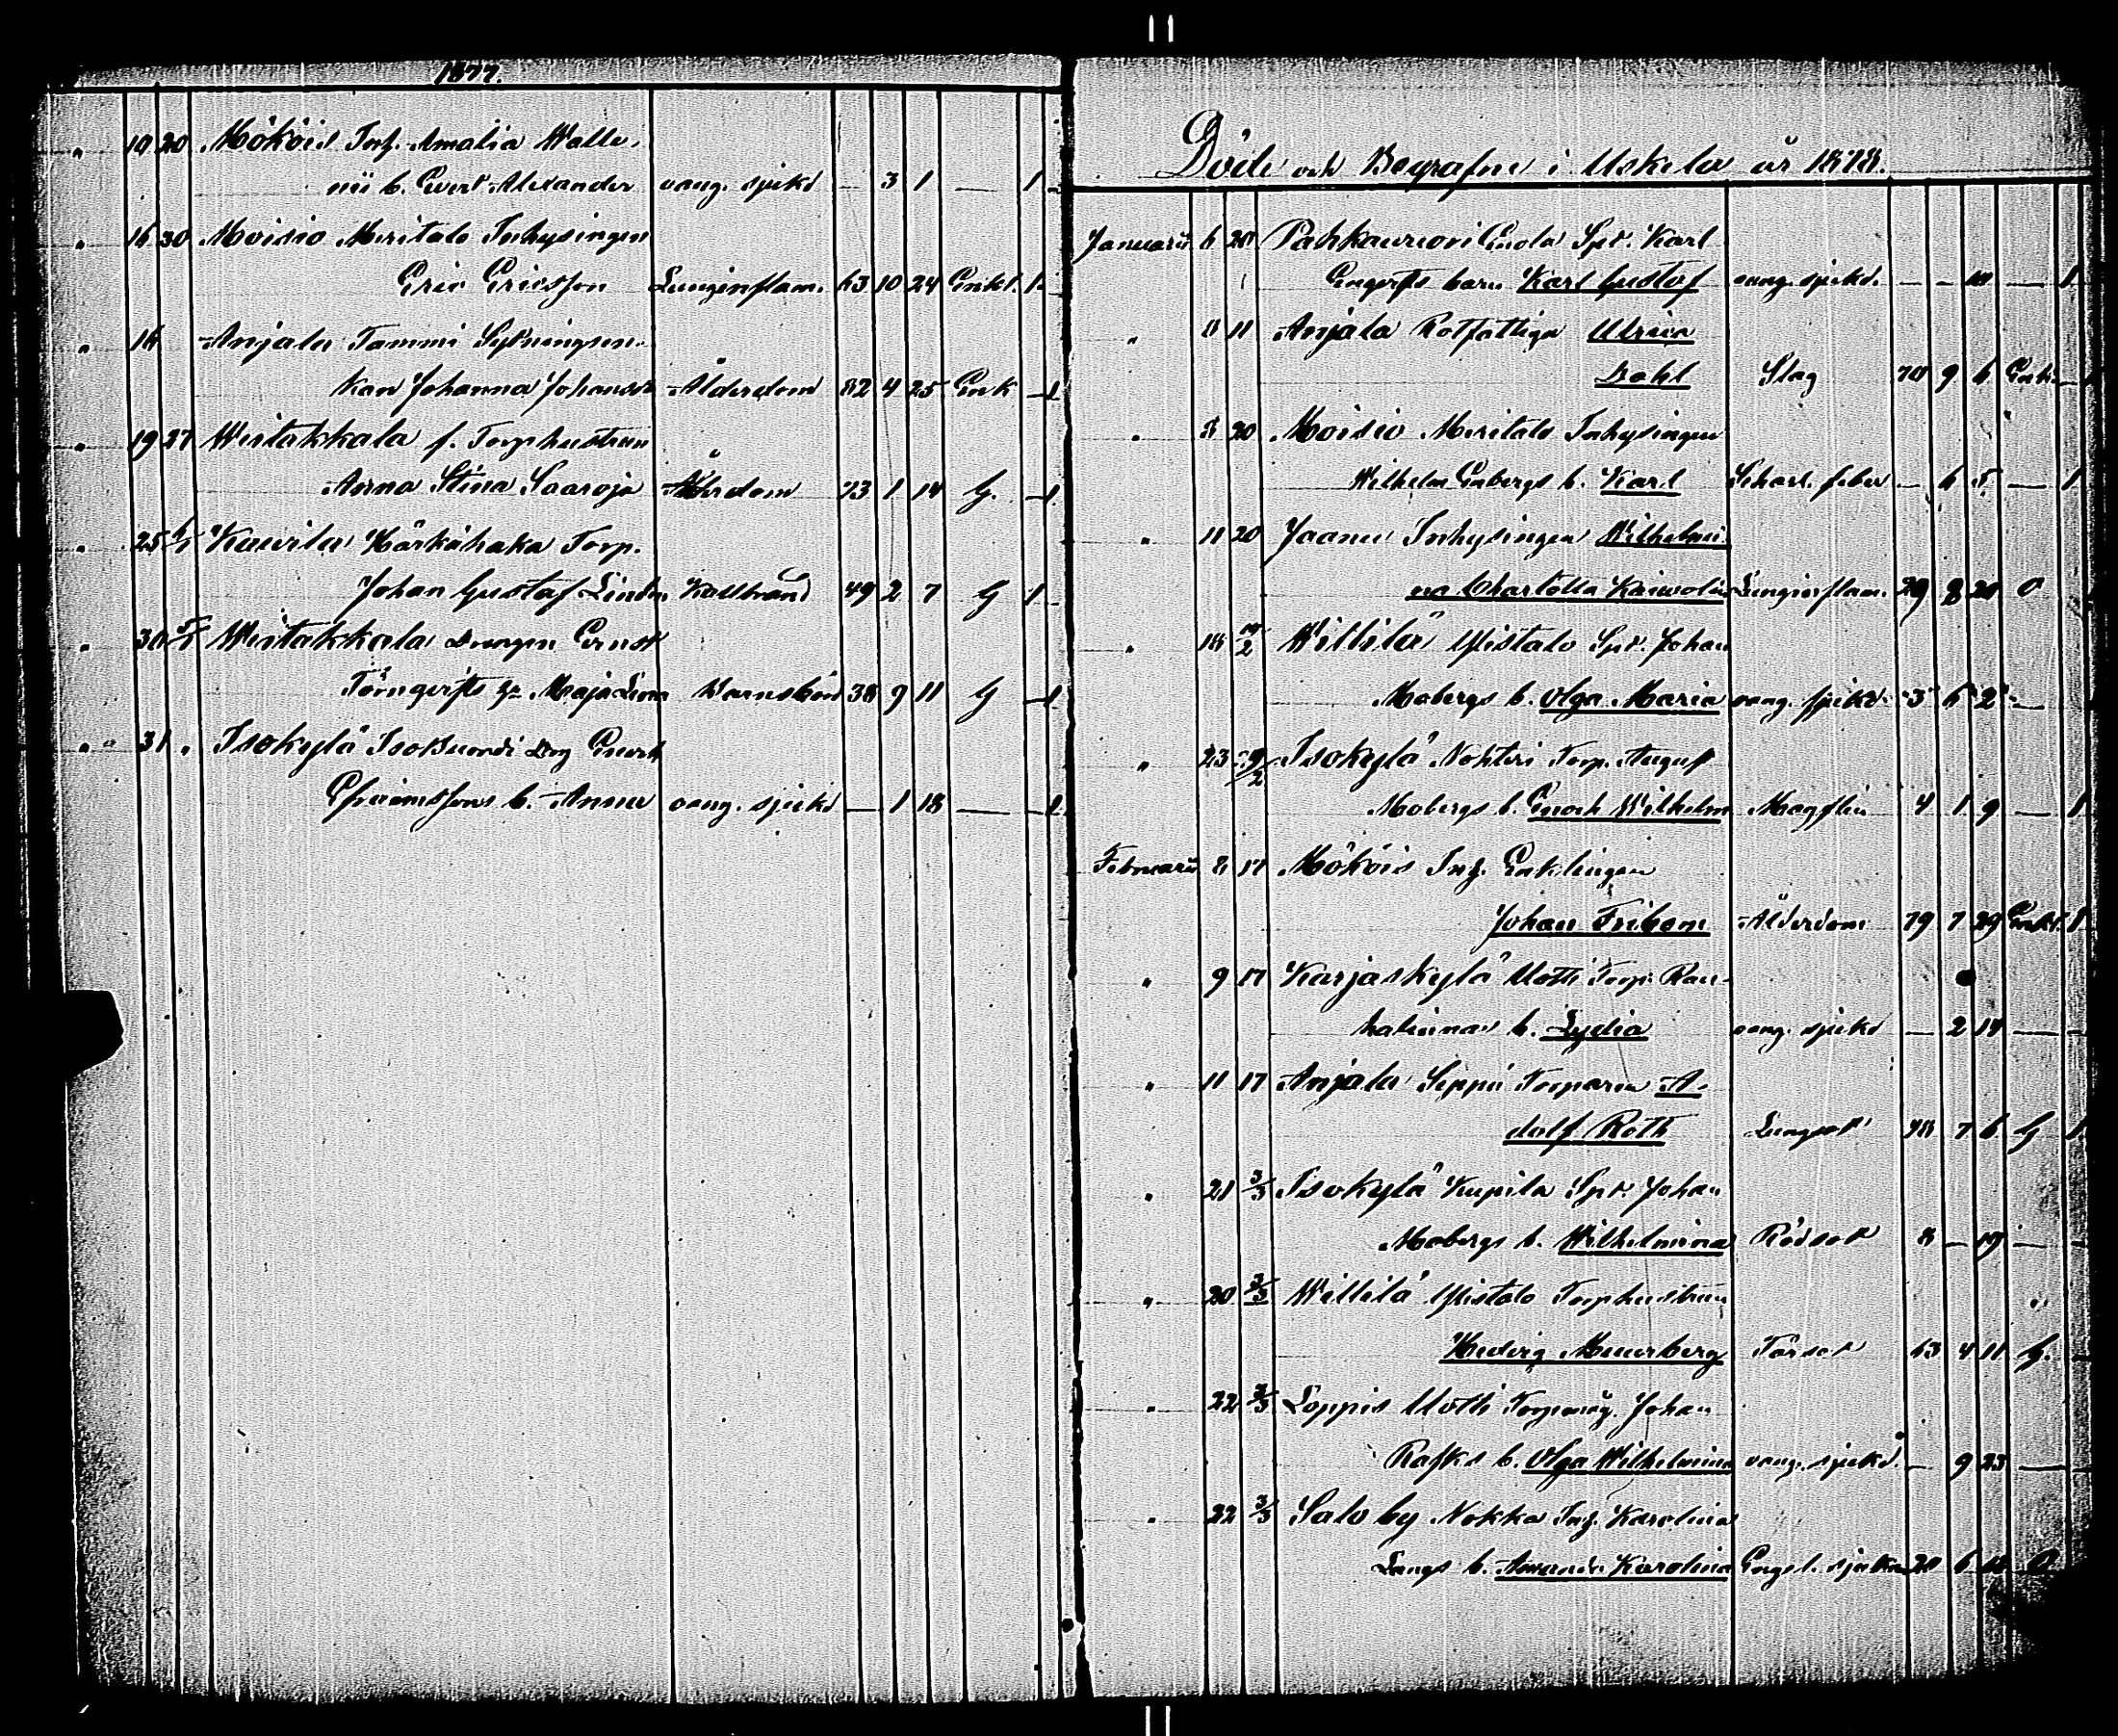 1877.
" 19 20 Mököis Inh. Amalia Walle-
nii b. Evert Alexander oang. sjukd — 3 1 — 1
" 16 30 Moisio Meritalo Inhysingen
Eric Ericsson Lunginflam. 63 10 24 Enkl. 1.
" 16 Anjala Tammi Sytningsen-
kan Johanna Johansdr Ålderdom 82 4 25 Enk — 1
" 19 27 Wiitakkala f. Torphustrun
Anna Stina Saaroja Ålderdom 73 1 14 G. — 1
" 25 Kavila Härkähaka Torp.
Johan Gustaf Linden Kallbrand 49 2 7 G 1
" 30 Wiitakkala Drängen Ernst
Maja Lena Barnsbörd 38 9 11 G — 1
" 31 " Isokylä Isosuondi Drg Enoch
Efraimssons b. Anna oang. sjukd — 1 18 — 1
Döde och Begrafne i Uskela år 1878.
Januarii 6 20 Pahkavuori Spr. Karl
Engerfts barn Karl Gustof oang. sjukd. — — — 1
" 8 11 Anjala Rotfattiga Ulrica
Dahl Slag 70 9 6 Enk. — 1
" 8 20 Moisio Meritalo Inhysingen
Wilhelm Enbergs b. Karl Scharl. feber — 6 5 — 1
" 11 20 Jaanu Inhysingen Wilhelmi-
na Charlotta Lunginflam. 29 8 20 O
" 18 Willilä Ylistalo Spr. Johan
Mobergs b. Olga Maria oang. sjukd. 3 6 2 —
" 23 Isokylä Nohteri Torp. August
Mobergs b. Enoch Wilhelm 4 1 9 — 1
Februarii 8 17 Mököis Inh. Enklingen
Johan Fribom Ålderdom 79 7 29 Enkl. 1
" 9 17 Karjaskylä Uotti Torp. Ran-
b. Lydia oang. sjukd — 2 14 —
" 11 17 Anjala Seppä Torparen A-
dolf Roth Lungsot 48 7 6 G 1
" 21 3/3 Isokylä Kupila Spr. Johan
Mobergs b. Wilhelmina Rödsot 8 — 19 — —
" 20 3/3 Willilä Ylistalo Torphustrun
Hedvig Murberg Tärsot 63 4 11 G. —
" 22 3/3 Loppis Uotti Torpmåg. Johan
Rafks b. Olga Wilhelmina oang. sjukd. — 9 23 —
" 22 3/3 Salo by Nokka Inh. Karolina
Längs b. Amanda Karolina Engel. sjukan 20 6 O